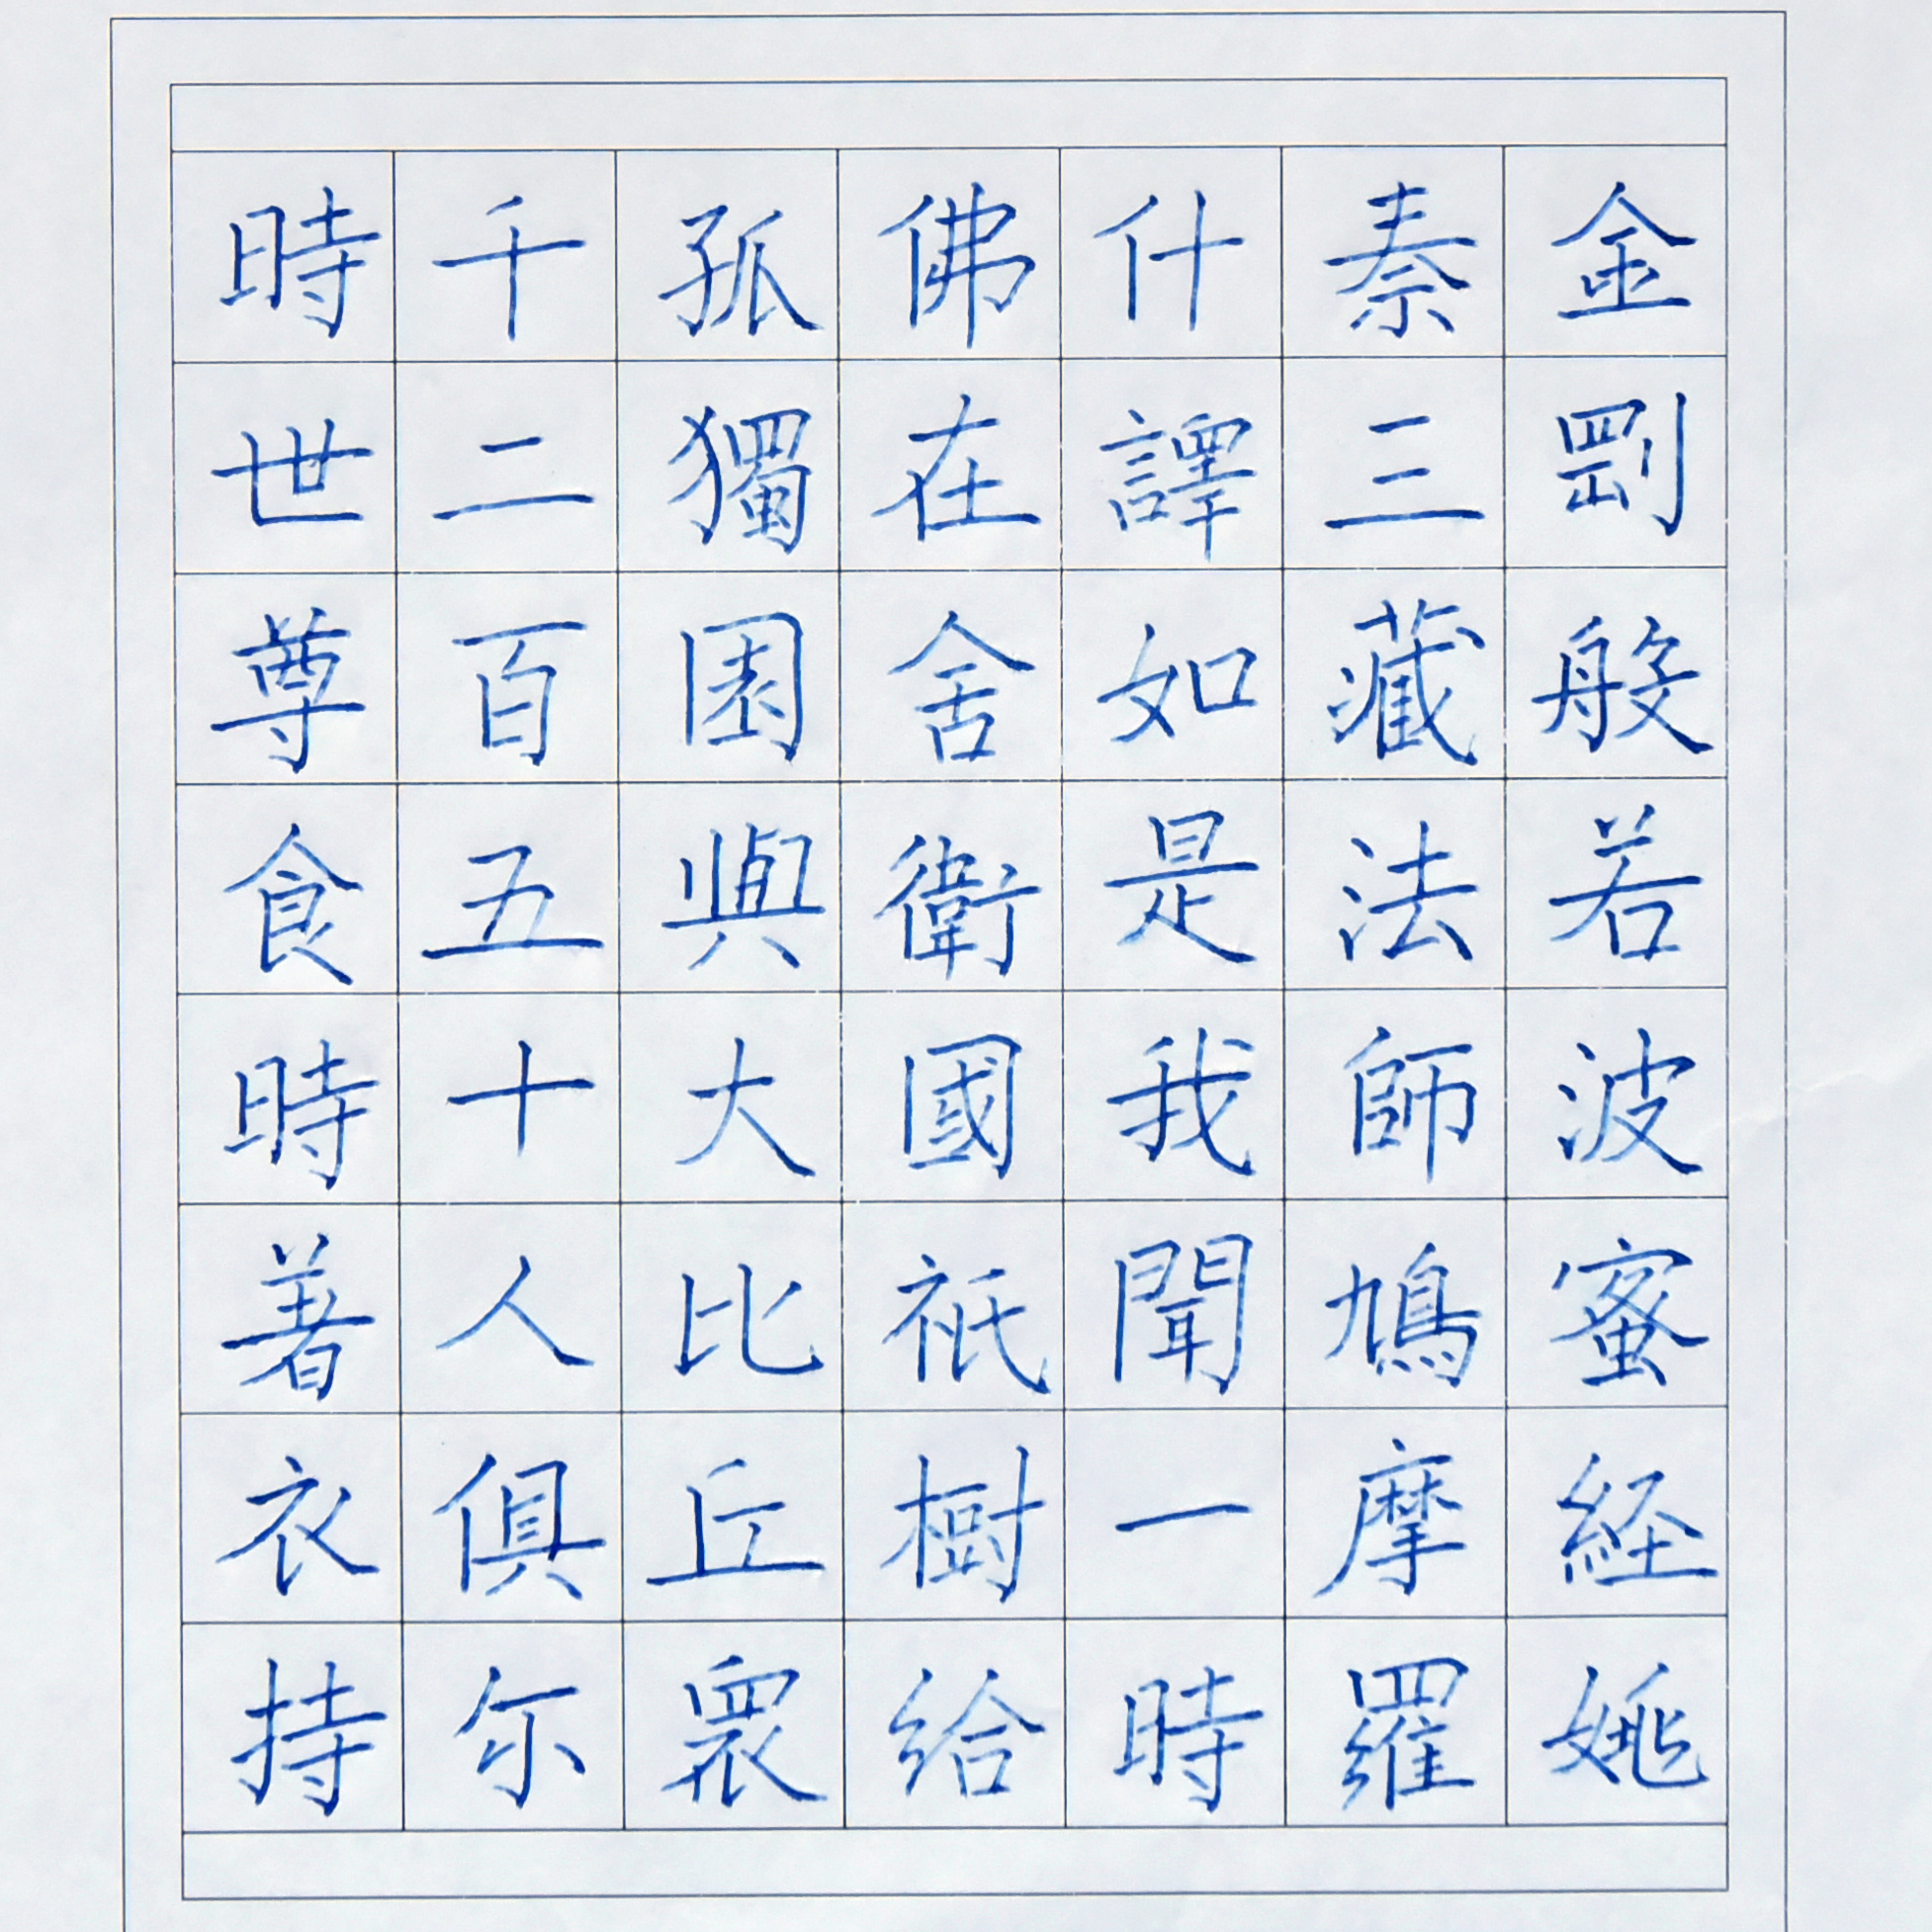 金剛般若波蜜経姚
秦三藏法師鳩摩羅
什譯如是我聞一時
佛在舍衛國祇樹給
孤獨園與大比丘衆
千二百五十人俱尔
時世尊食時著衣持